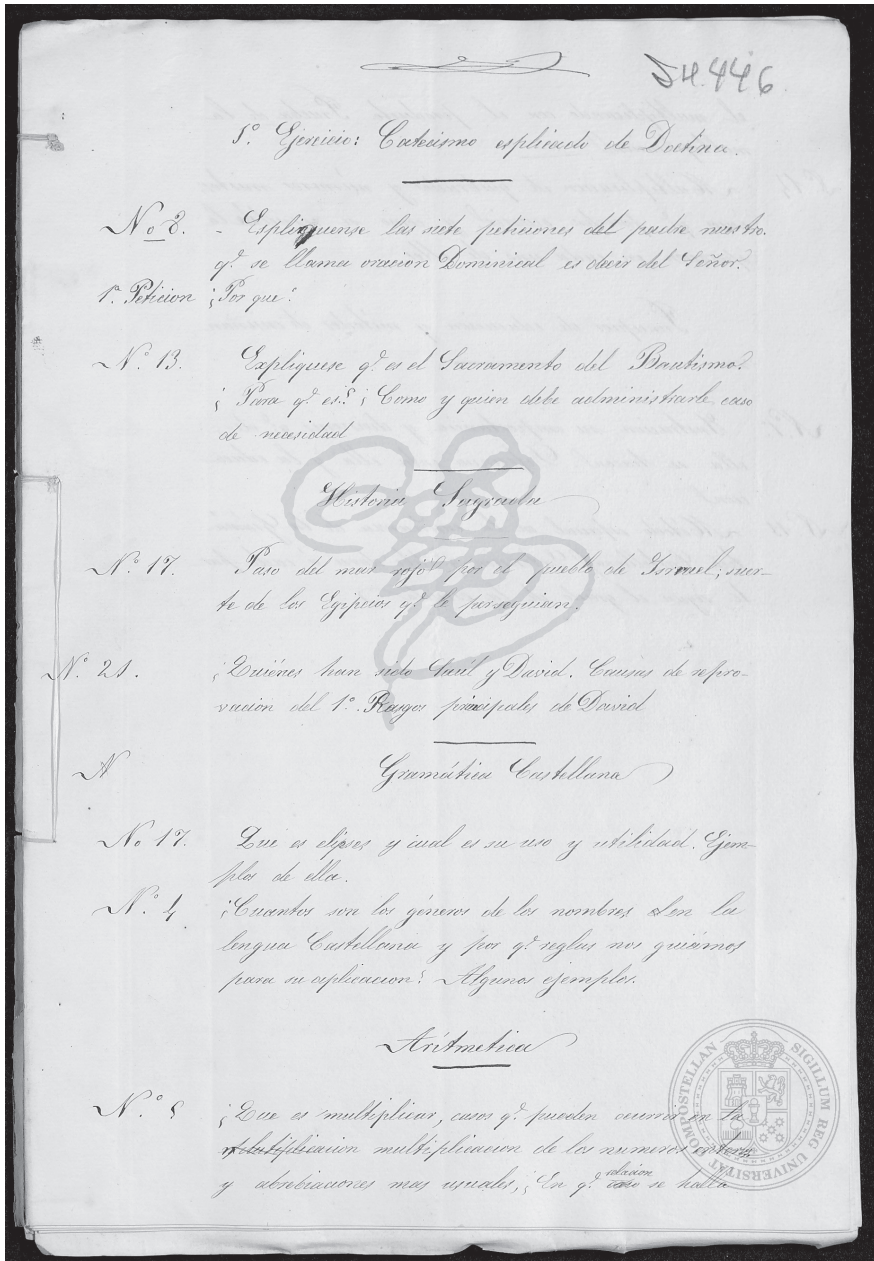 54.446
5º. Ejercicio: Catecismo esplicado de Doctina.
Nº 8. - Espliquense las siete peticiones del padre nuestro.
q.e se llama oracion Dominical es decir del Señor.
1.ª Peticion ¿Por que?
N.º 13. Expliquese q.e es el Sacramento del Bautismo.
¿Para q.e es? ¿Como y quien debe administrarle caso
de necesidad
Historia Sagrada
N.º 17. Paso del mar rojo por el pueblo de Israel; suer-
te de los Egipcios q.e le perseguian.
N.º 21. ¿Quiénes han sido Saúl y David. Causas de repro-
vacion del 1.º Rasgos principales de David
N Gramática Castellana
No 17. Que es elipses y cual es su uso y utilidad. Ejem-
plos de ella.
N.º 4 ¿Cuantos son los géneros de los nombres en la
lengua Castellana y por q.e reglas nos guiámos
para su aplicacion? Algunos ejemplos.
Aritmetica
N.º 5 ¿Que es multiplicar, casos q.e pueden ocurrir en la
multiplicacion de los numeros enteros
y abrebiaciones mas usuales, ¿En q.e relacion se halla
SIGILLUM REG UNIVERSITAT COMPOSTELLAN